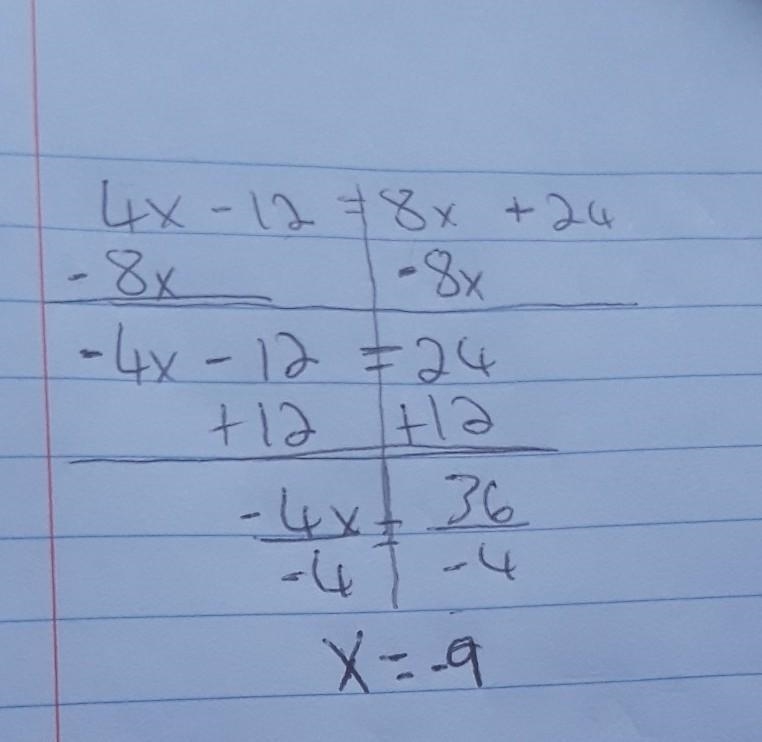 4x - 12 = 8x + 24
- 8x - 8x
-4x - 12 = 24
+12 +12
-4x = 36
-4 -4
x = -9